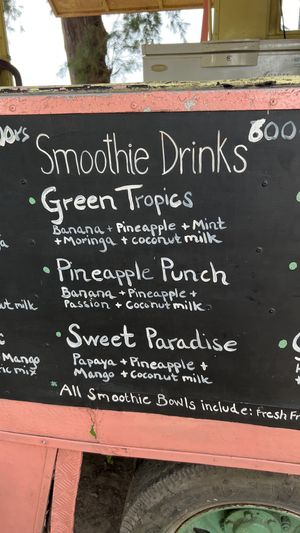 Smoothie Drinks 600
• Green Tropics
Banana + Pineapple + Mint
+ Moringa + coconut milk
• Pineapple Punch
Banana + Pineapple +
Passion + Coconut milk
• Sweet Paradise
Papaya + Pineapple +
Mango + Coconut milk
* All Smoothie Bowls include: Fresh Fr
ut milk
Mango
ric mix